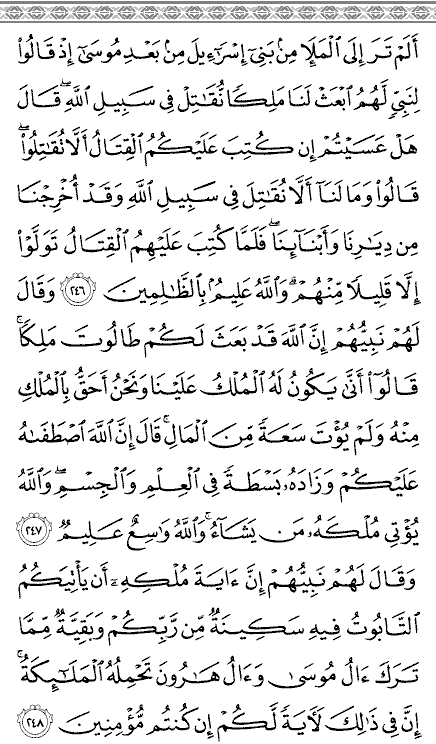 أَلَمْ تَرَ إِلَى ٱلْمَلَإِ مِنۢ بَنِىٓ إِسْرَٰٓءِيلَ مِنۢ بَعْدِ مُوسَىٰٓ إِذْ قَالُوا۟
لِنَبِىٍّ لَّهُمُ ٱبْعَثْ لَنَا مَلِكًا نُّقَٰتِلْ فِى سَبِيلِ ٱللَّهِ ۖ قَالَ
هَلْ عَسَيْتُمْ إِن كُتِبَ عَلَيْكُمُ ٱلْقِتَالُ أَلَّا تُقَٰتِلُوا۟ ۖ
قَالُوا۟ وَمَا لَنَآ أَلَّا نُقَٰتِلَ فِى سَبِيلِ ٱللَّهِ وَقَدْ أُخْرِجْنَا
مِن دِيَٰرِنَا وَأَبْنَآئِنَا ۖ فَلَمَّا كُتِبَ عَلَيْهِمُ ٱلْقِتَالُ تَوَلَّوْا۟
إِلَّا قَلِيلًا مِّنْهُمْ ۗ وَٱللَّهُ عَلِيمٌۢ بِٱلظَّٰلِمِينَ ٢٤٦ وَقَالَ
لَهُمْ نَبِيُّهُمْ إِنَّ ٱللَّهَ قَدْ بَعَثَ لَكُمْ طَالُوتَ مَلِكًا ۚ
قَالُوٓا۟ أَنَّىٰ يَكُونُ لَهُ ٱلْمُلْكُ عَلَيْنَا وَنَحْنُ أَحَقُّ بِٱلْمُلْكِ
مِنْهُ وَلَمْ يُؤْتَ سَعَةً مِّنَ ٱلْمَالِ ۚ قَالَ إِنَّ ٱللَّهَ ٱصْطَفَىٰهُ
عَلَيْكُمْ وَزَادَهُۥ بَسْطَةً فِى ٱلْعِلْمِ وَٱلْجِسْمِ ۖ وَٱللَّهُ
يُؤْتِى مُلْكَهُۥ مَن يَشَآءُ ۚ وَٱللَّهُ وَٰسِعٌ عَلِيمٌ ٢٤٧
وَقَالَ لَهُمْ نَبِيُّهُمْ إِنَّ ءَايَةَ مُلْكِهِۦٓ أَن يَأْتِيَكُمُ
ٱلتَّابُوتُ فِيهِ سَكِينَةٌ مِّن رَّبِّكُمْ وَبَقِيَّةٌ مِّمَّا
تَرَكَ ءَالُ مُوسَىٰ وَءَالُ هَٰرُونَ تَحْمِلُهُ ٱلْمَلَٰٓئِكَةُ ۚ
إِنَّ فِى ذَٰلِكَ لَءَايَةً لَّكُمْ إِن كُنتُم مُّؤْمِنِينَ ٢٤٨